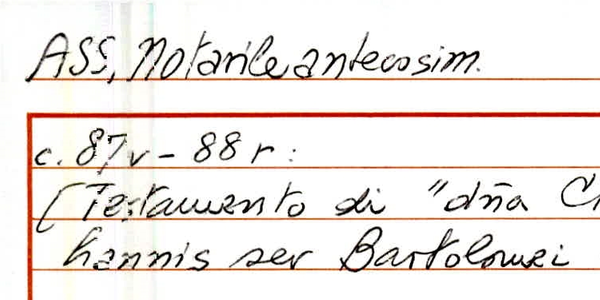 ASS, Notarile antecosim.
c. 87v - 88r:
[Testamento di "dña C
hannis ser Bartolomei